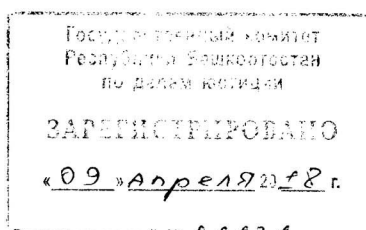 Государственный комитет
Республики Башкортостан
по делам юстиции
ЗАРЕГИСТРИРОВАНО
«09» Апреля 2018 г.